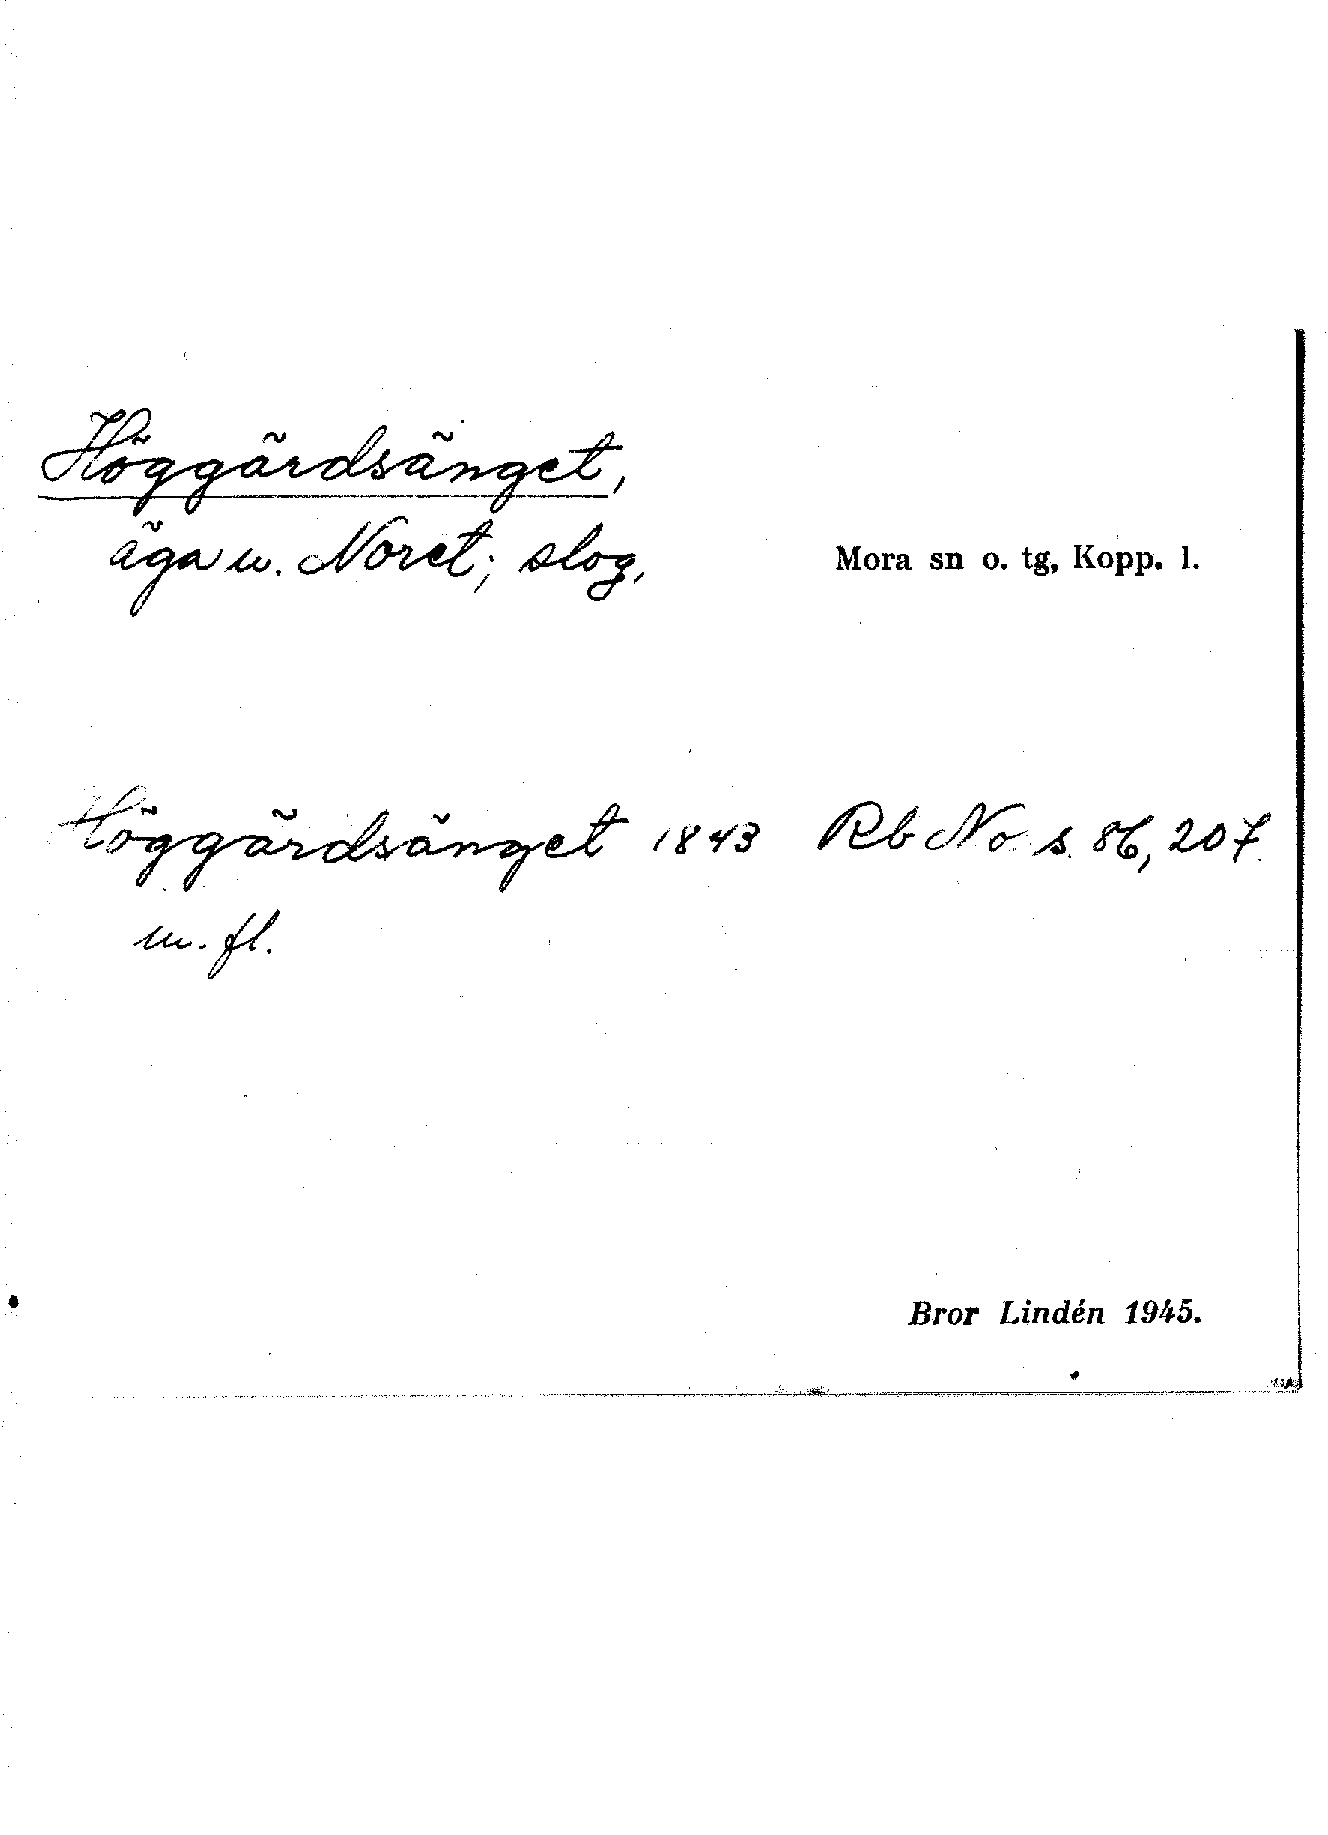 Höggärdsänget,
äga u. Noret; slog.
Mora sn o. tg, Kopp. l.
Höggärdsänget 1843 Rb No s. 86, 207
m. fl.
Bror Lindén 1945.